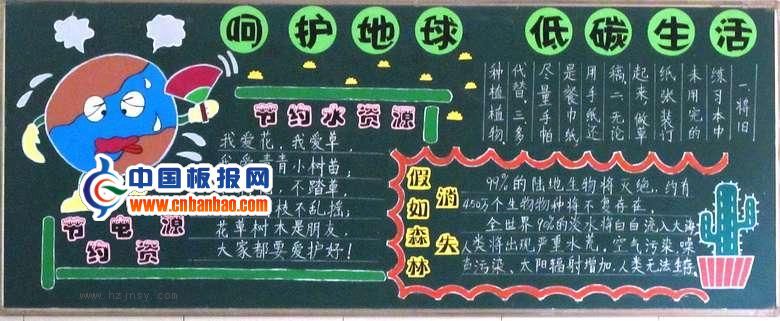 呵护地球 低碳生活
一.将旧
练习本中
未用完的
纸张装订
起来,做草
稿。二.无论
用手纸还
是餐巾纸
尽量手帕
代替。三.多
种植植物.
节约水资源
我爱花,我爱草,
青青小树苗;
不踏草,
枝不乱摇;
花草树木是朋友,
大家都要爱护好!
中国板报网
www.cnbanbao.com
节电源
约资
假如森林
消失
99%的陆地生物将灭绝,约有
450万个生物物种将不复存在,
全世界90%的淡水将白白流入大海
人类将出现严重水荒,空气污染、噪
音污染、太阳辐射增加,人类无法生存.
www.hzjnsy.com